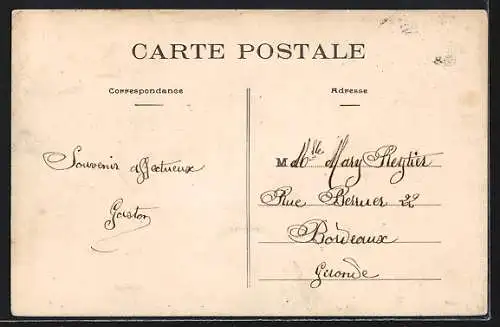 CARTE POSTALE
Correspondance
Adresse
Souvenir affectueux
Gaston
M Mlle Mary
Rue Berruer 22
Bordeaux
Gironde